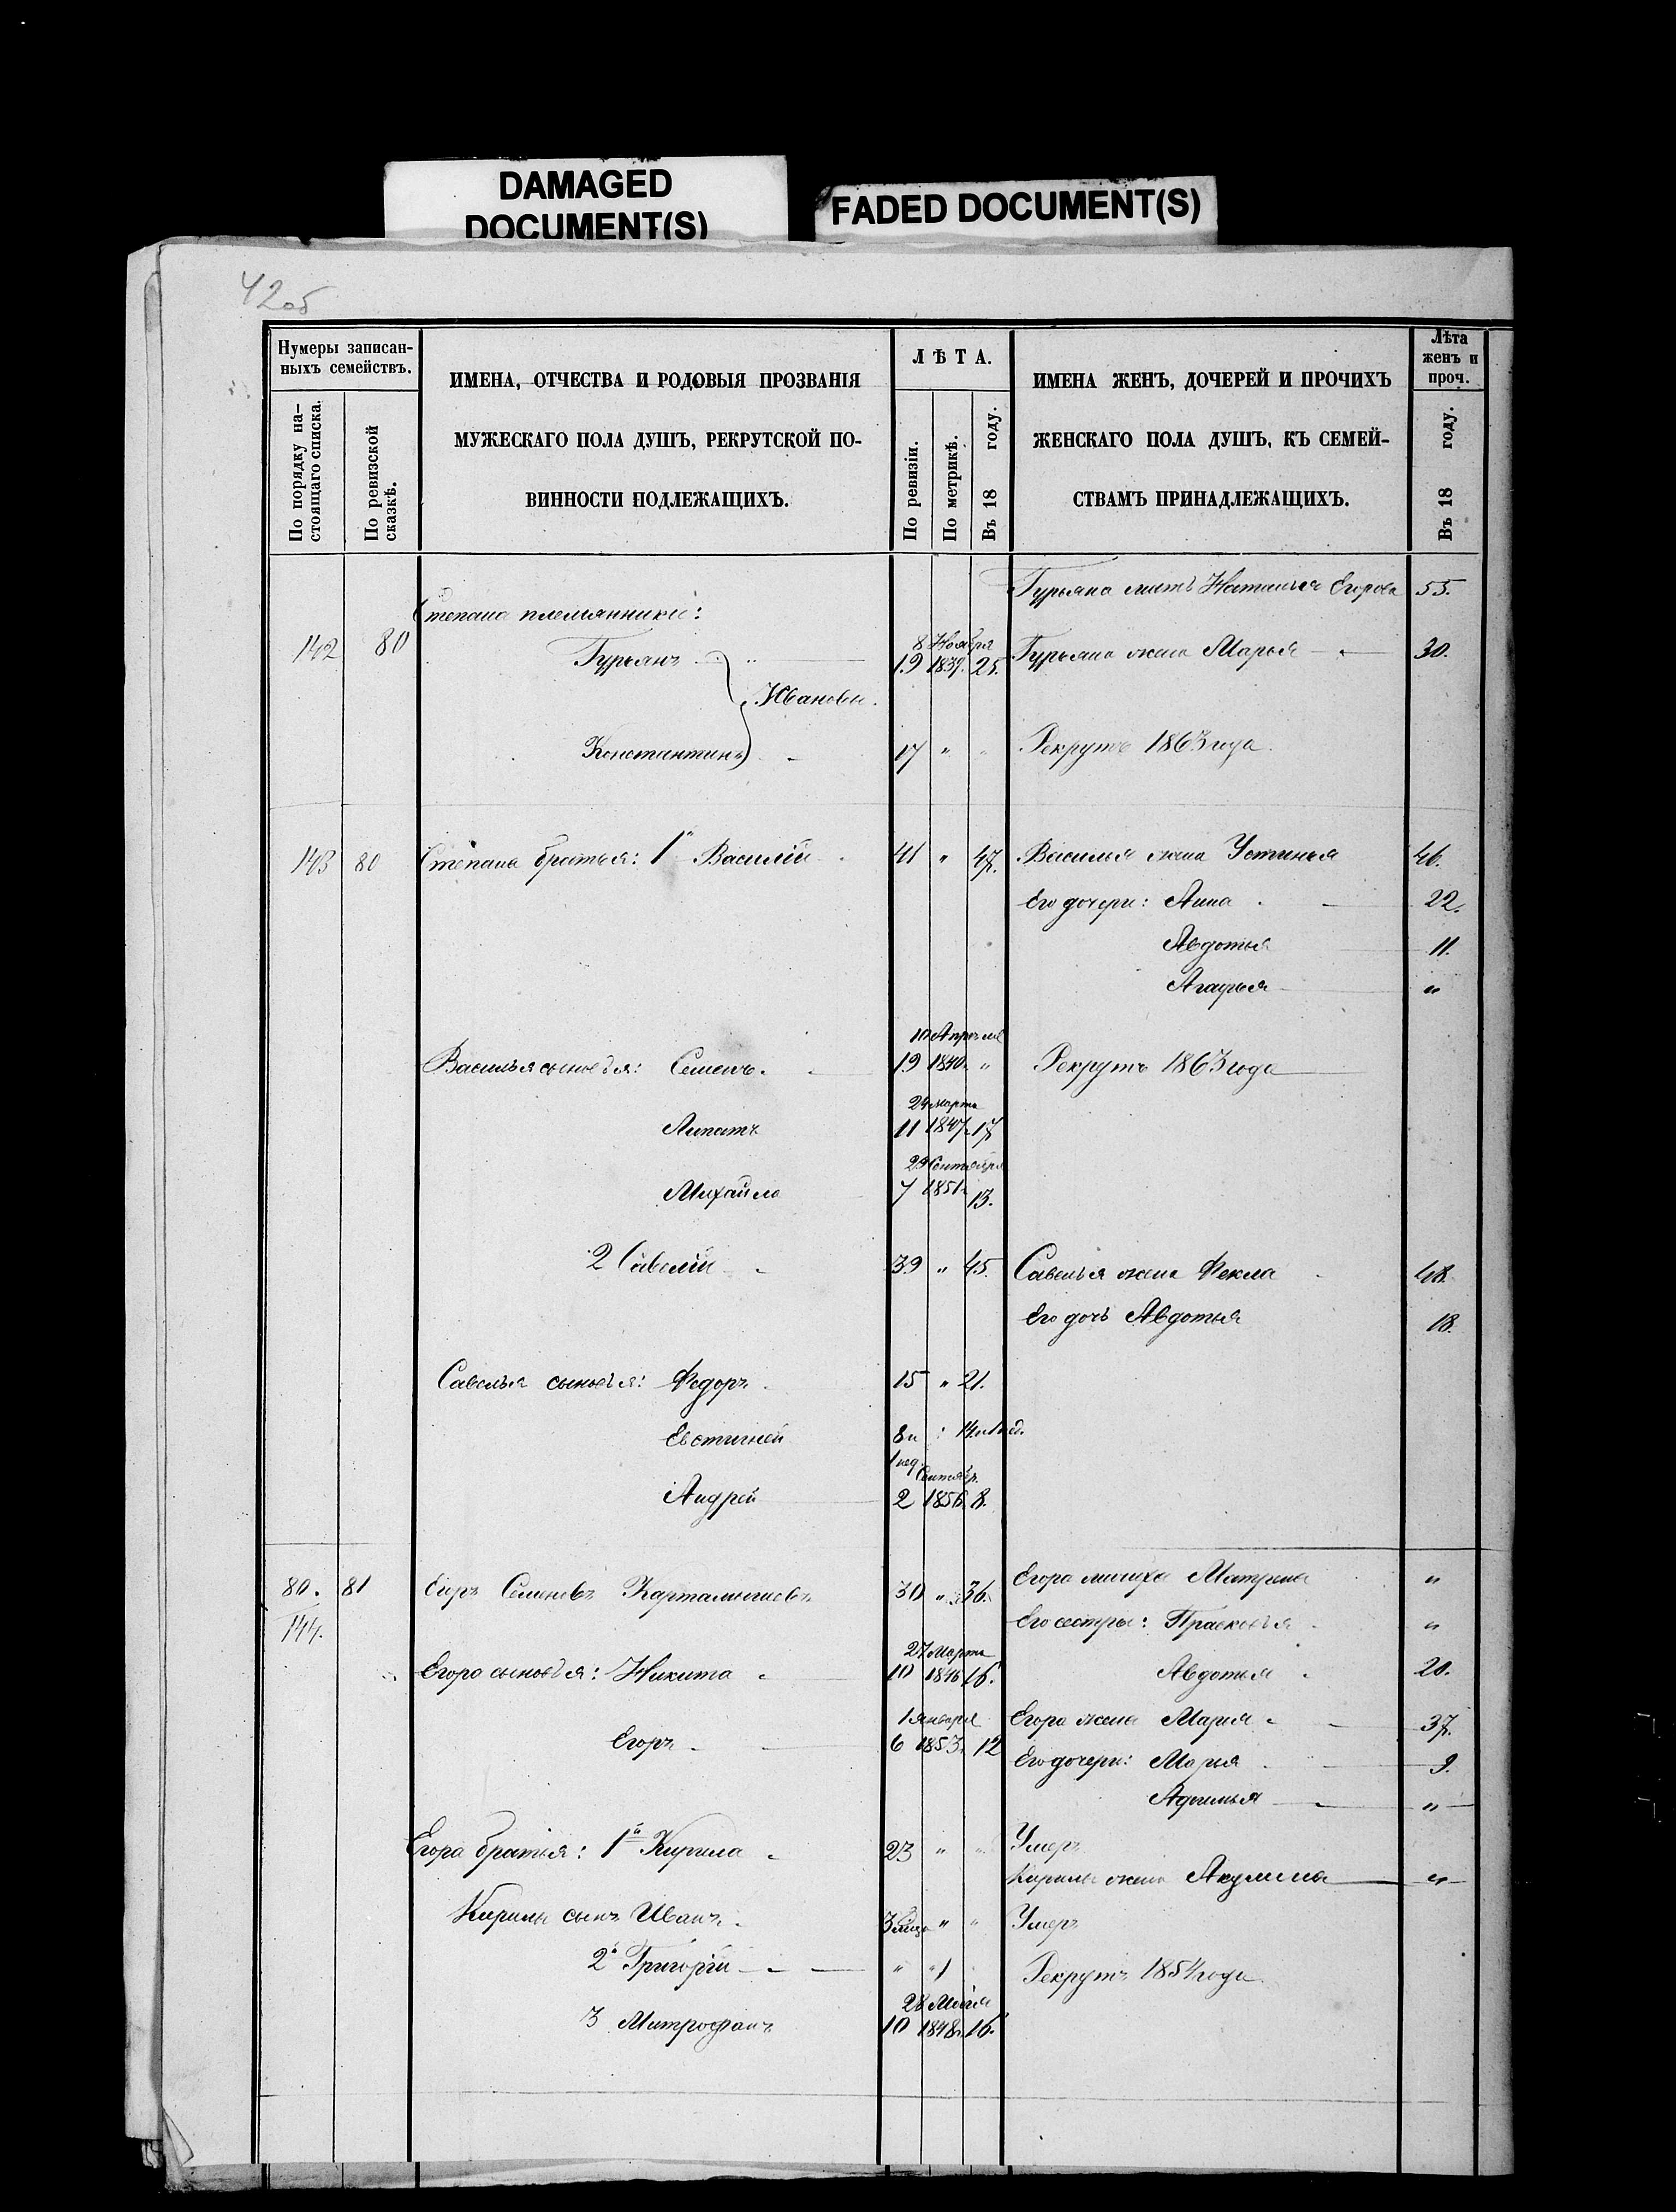 DAMAGED
DOCUMENT(S)
FADED DOCUMENT(S)
42об
Нумеры записан-
ныхъ семействъ.
По порядку на-
стоящаго списка.
По ревизской
сказкѣ.
ИМЕНА, ОТЧЕСТВА И РОДОВЫЯ ПРОЗВАНІЯ
МУЖЕСКАГО ПОЛА ДУШЪ, РЕКРУТСКОЙ ПО-
ВИННОСТИ ПОДЛЕЖАЩИХЪ.
ЛѢТА.
По ревизіи.
По метрикѣ.
Въ 18 году.
ИМЕНА ЖЕНЪ, ДОЧЕРЕЙ И ПРОЧИХЪ
ЖЕНСКАГО ПОЛА ДУШЪ, КЪ СЕМЕЙ-
СТВАМЪ ПРИНАДЛЕЖАЩИХЪ.
Лѣта
женъ и
проч.
Въ 18 году.
Гурьяна мать Наталья Егорова 55.
Степана племянники:
142 80 Гурьянъ 8 Ноября 19 1839. 25. Гурьяна жена Марья 30.
Ивановы.
Константинъ 17 " " Рекрутъ 1863 года.
143 80 Степана братья: 1й Василій 41 " 47. Василья жена Устинья 46.
Его дочери: Анна 22.
Авдотья 11.
Агафья "
10 Апрѣля
Василья сыновья: Семенъ. 19 1840. " Рекрутъ 1863 года
24 марта
Липатъ 11 1847. 17
29 Сентября
Михайла 7 1851. 13.
2 Савелій 39 " 45. Савелья жена Фекла 48.
Его дочь Авдотья 18.
Савелья сыновья: Федоръ 15 " 21.
Евстигней 8 и 1 нед. : 14. и 1 нед.
Сентябр.
Андрей 2 1856. 8.
80. 81 Егоръ Семеновъ 30 " 36. Егора мачиха Матрена "
144. Его сестры: Прасковья "
27 Марта
Егора сыновья: Никита 10 1848 16. Авдотья 20.
1 Января
Егоръ 6 1853. 12 Егора жена Мария 37.
Его дочери: Марья 9.
"
Егора братья: 1й Кирила 23 " " Умеръ
Кирилы жена Акулина "
Кирилы сынъ Иванъ. " " Умеръ
2й Григорій " " Рекрутъ 1854 года.
28 Мая
3 Митрофанъ 10 1848. 16.